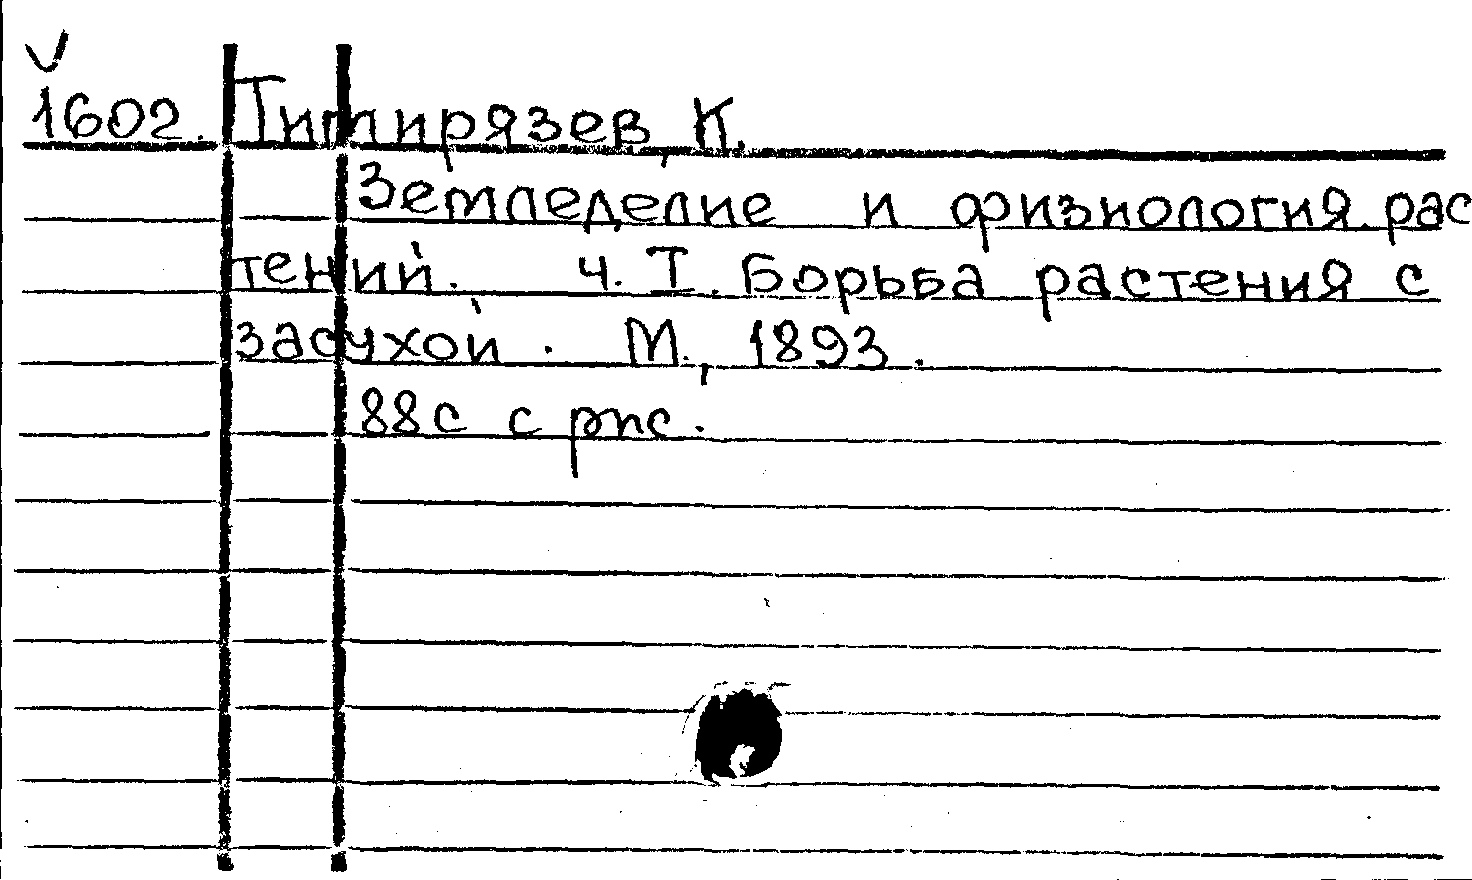 V
1602. Тимирязев, К.
Земледелие и физиология рас
тений. ч. I. Борьба растения с
засухой. М., 1893.
88с с рис.